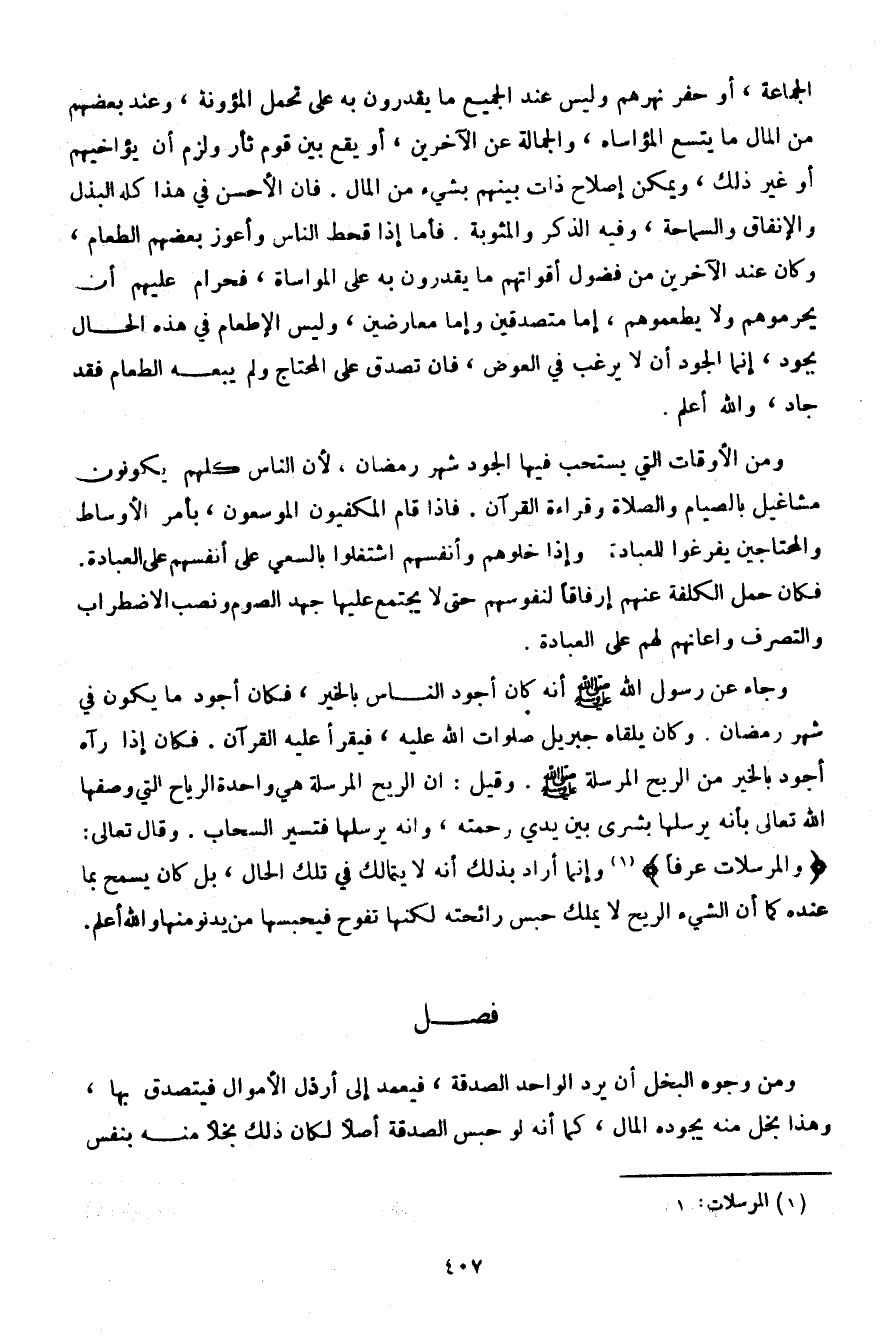 الجماعة ، أو حفر نهرهم وليس عند الجميع ما يقدرون به على تحمل المؤونة ، وعند بعضهم
من المال ما يتسع المؤاساه ، والجمالة عن الآخرين ، أو يقع بين قوم ثأر ولزم أن يؤاخيهم
أو غير ذلك ، ويمكن إصلاح ذات بينهم بشيء من المال . فان الأحسن في هذا كله البذل
والإنفاق والسماحة ، وفيه الذكر والمثوبة . فأما إذا قحط الناس وأعوز بعضهم الطعام ،
وكان عند الآخرين من فضول أقواتهم ما يقدرون به على المواساة ، فحرام عليهم أن
يحرموهم ولا يطعموهم ، إما متصدقين وإما معارضين ، وليس الإطعام في هذه الحال
بجود ، إنما الجود أن لا يرغب في العوض ، فان تصدق على المحتاج ولم يبعه الطعام فقد
جاد ، والله أعلم .
ومن الأوقات التي يستحب فيها الجود شهر رمضان ، لأن الناس كلهم يكونون
مشاغيل بالصيام والصلاة وقراءة القرآن . فاذا قام المكفيون الموسعون ، بأمر الأوساط
والمحتاجين يفرغوا للعبادة وإذا خلوهم وأنفسهم اشتغلوا بالسعي على أنفسهم على العبادة.
فكان حمل الكلفة عنهم إرفاقاً لنفوسهم حتى لا يجتمع عليها جهد الصوم ونصب الاضطراب
والتصرف واعانهم لهم على العبادة .
وجاء عن رسول الله ﷺ أنه كان أجود الناس بالخير ، فكان أجود ما يكون في
شهر رمضان . وكان يلقاه جبريل صلوات الله عليه ، فيقرأ عليه القرآن . فكان إذا رآه
أجود بالخير من الريح المرسلة ﷺ . وقيل : ان الريح المرسلة هي واحدة الرياح التي وصفها
الله تعالى بأنه يرسلها بشرى بين يدي رحمته ، وانه يرسلها فتسير السحاب . وقال تعالى:
﴿ والمرسلات عرفاً ﴾ (١) وإنما أراد بذلك أنه لا يتمالك في تلك الحال ، بل كان يسمح بما
عنده كما أن الشيء الريح لا يملك حبس رائحته لكنها تفوح فيحبسها من يدنو منها والله أعلم.
فصل
ومن وجوه البخل أن يرد الواحد الصدقة ، فيعمد إلى أرذل الأموال فيتصدق بها ،
وهذا بخل منه بجوده المال ، كما أنه لو حبس الصدقة أصلاً لكان ذلك بخلاً منه بنفس
(١) المرسلات: ١
٤٠٧